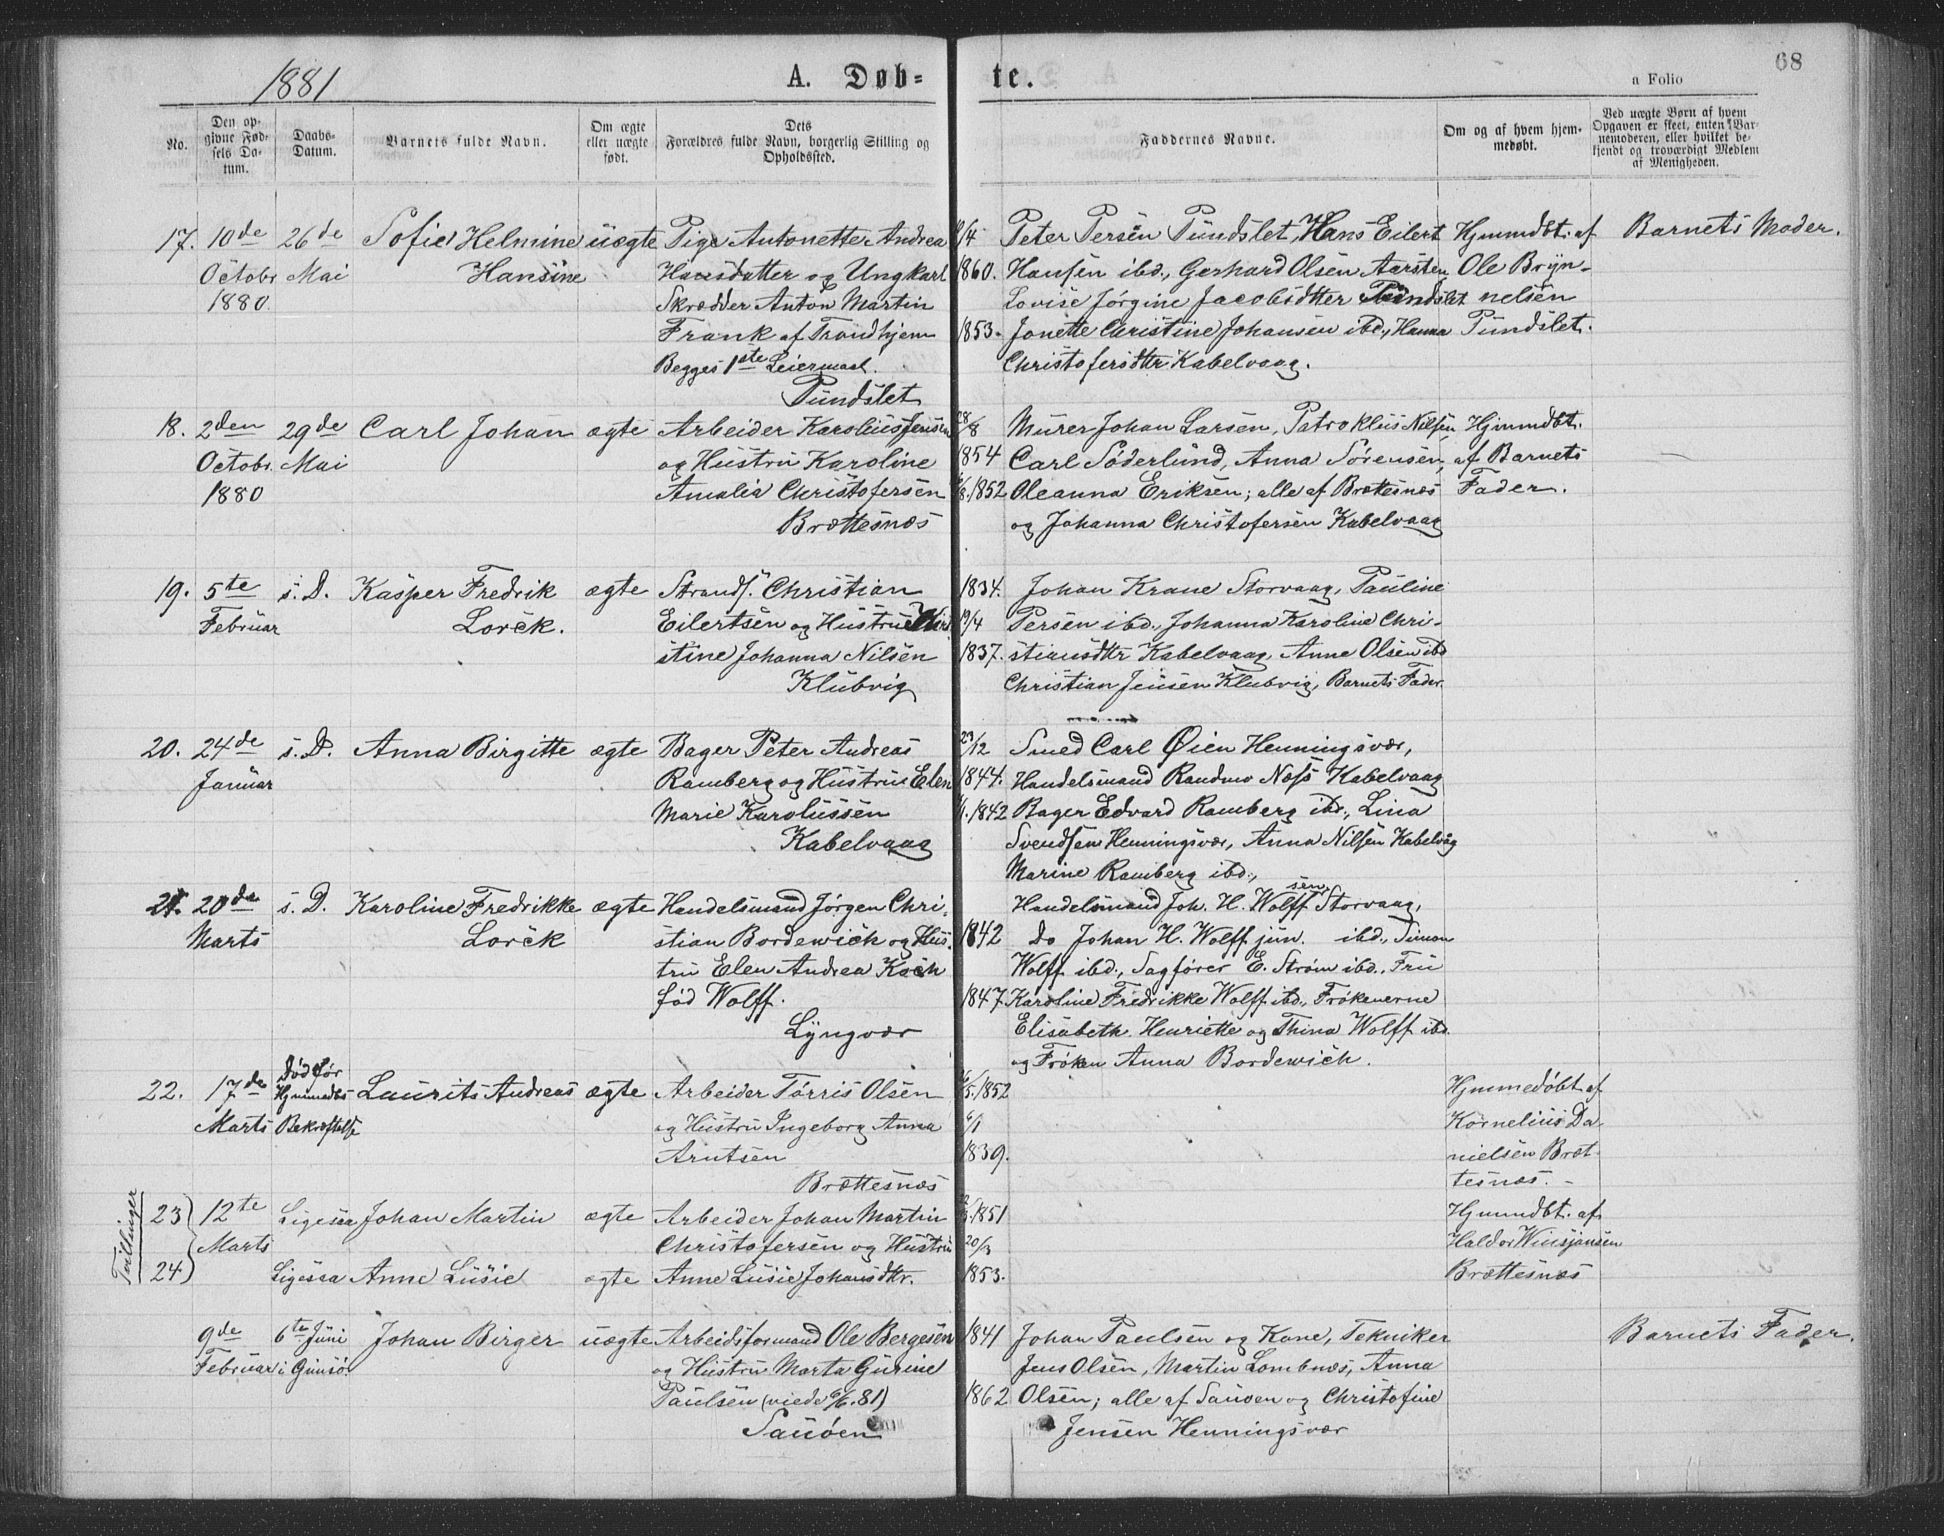 1881
A. Døb-
te.
a Folio
68
No.
Den op-
givne Fød-
sels Da-
tum.
Daabs-
Datum.
Barnets fulde Navn.
Om ægte
eller uægte
født.
Dets
Forældres fulde Navn, borgerlig Stilling og
Opholdssted.
Faddernes Navne.
Om og af hvem hjem-
medøbt.
Ved uægte Børn af hvem
Opgaven er skeet, enten Bar-
nemoderen, eller hvilket be-
kjendt og troværdigt Medlem
af Menigheden.
17. 10de 26de Sofie Helmine uægte Pige Antonette Andrea 9/4 Peter Persen Pundslet, Hans Eilert Hjmmdbt. af Barnets Moder.
Octobr Mai Hansine Hansdatter og Ungkarl 1860. Hansen ibd., Gerhard Olsen Aarsten, Ole Bryn-
1880. Skrædder Anton Martin Lovise Jørgine Jacobsdtter Pundslet nelsen
Frank af Trondhjem 1853. Jonette Christine Johansen ibd., Hanna Pundslet.
Begges 1ste Leiermaal. Christofersdtr Kabelvaag.
Pundslet
18. 2den 29de Carl Johan ægte Arbeider Karolius Jensen 28/8 Murer Johan Larsen, Patroklus Nilsen, Hjmmdbt.
Octobr. Mai og Hustru Karoline 1854 Carl Söderlund, Anna Sørensen, af Barnets
1880 Amalia Christofersen /8.1852 Oleanna Eriksen; alle af Brettesnæs Fader.
Brættesnæs og Johanna Christofersen Kabelvaag
19. 5te s. D. Kasper Fredrik ægte Strands. Christian 1834. Johan Krane Storvaag, Pauline
Februar Lorck. Eilertsen og Hustru Kir 19/4 Persen ibd., Johanna Karoline Chri-
stine Johanna Nilsen 1837. stiansdtr Kabelvaag, Anne Olsen ibd
Klubvig Christian Jensen Klubvig, Barnets Fader.
20. 24de s. D. Anna Birgitte ægte Bager Peter Andreas 23/12 Smed Carl Øien Henningsvær,
Januar Ramberg og Hustru Elen 1844. Handelsmand Randmo Næss Kabelvaag
Marie Karolussen /1.1842 Bager Edvard Ramberg ibd., Lina
Kabelvaag Svendsen Henningsvær, Anna Nilsen Kabelvåg
Marine Ramberg ibd.,
21. 20de s. D. Karoline Fredrikke ægte Handelsmand Jørgen Chri- Handelsmand Joh. H. Wolff sen. Storvaag,
Marts Lorck stian Bordewick og Hus- 1842 Do Johan H. Wolff jun. ibd., Simon
tru Elen Andrea Koch Wolff ibd., Sagfører E. Strøm ibd., Fru
fød Wolff. 1847 Karoline Fredrikke Wolff ibd., Frøkenerne
Lyngvær Elisabeth. Henriette og Thina Wolff ibd
og Frøken Anna Bordewich.
22. 17de Død før Laurits Andreas ægte Arbeider Tørris Olsen /5.1852 Hjmmedøbt af
Marts Hjmmedbs Bekræftelse og Hustru Ingeborg Anna 6/1 Kornelius Da-
Arntsen 1839. nielsen Bræt-
Brættesnæs tesnæs.
Tvillinger
23 12te Ligesaa Johan Martin ægte Arbeider Johan Martin 1851 Hjmmdbt. af
Marts Christofersen og Hustru 20/3 Haldor
24 Ligesaa Anne Lusie ægte Anne Lusie Johansdtr. 1853. Brættesnæs
9de 6te Juni Johan Birger uægte Arbeidsformand Ole Bergesen 1841 Johan Paulsen og Kone, Tekniker Barnets Fader.
Februar i Gimsø. og Hustru Marta Gurine Jens Olsen, Martin Lombnæs, Anna
Paulsen (viede 6/6.81) 1862 Olsen; alle af Sauøen og Christofine
Sauøen Jensen Henningsvær